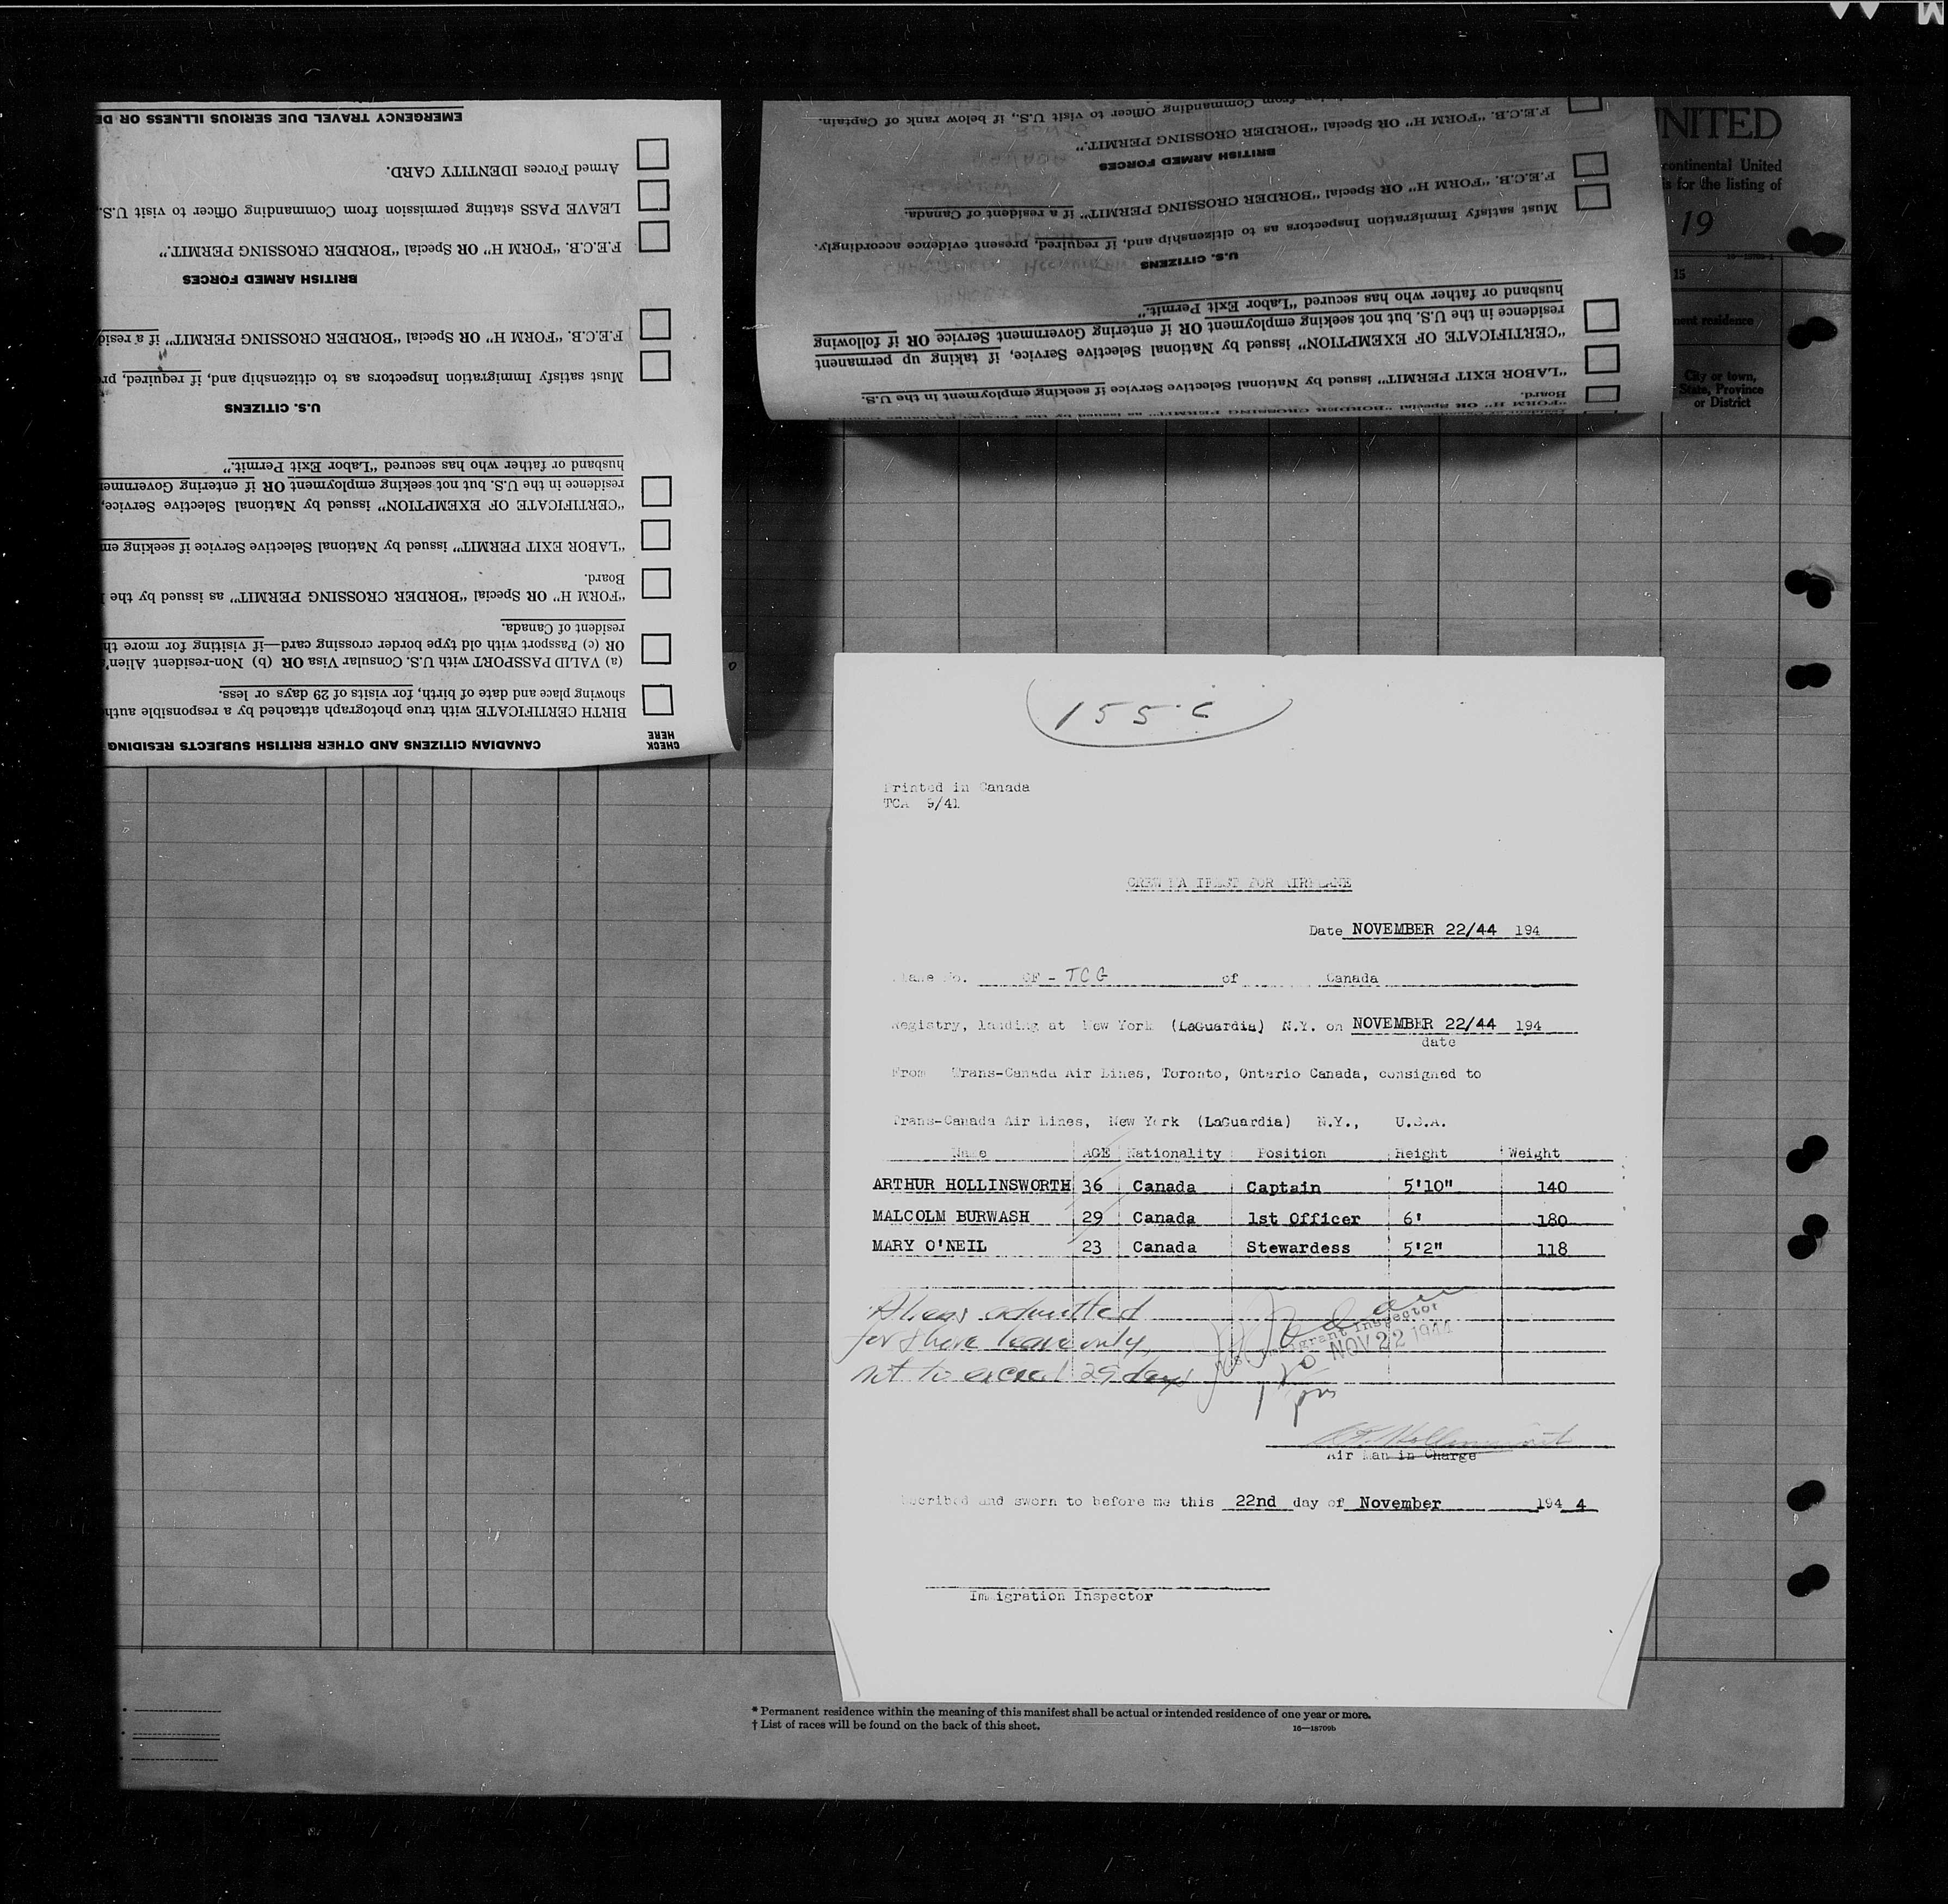 EMERGENCY TRAVEL DUE SERIOUS ILLNESS OR DE
Armed Forces IDENTITY CARD.
LEAVE PASS stating permission from Commanding Officer to visit U.S.
F.E.C.B. "FORM H" OR Special "BORDER CROSSING PERMIT."
BRITISH ARMED FORCES
F.E.C.B. "FORM H" OR Special "BORDER CROSSING PERMIT" if a resid
Must satisfy Immigration Inspectors as to citizenship and, if required, pr
U.S. CITIZENS
husband or father who has secured "Labor Exit Permit."
residence in the U.S. but not seeking employment OR if entering Governmen
"CERTIFICATE OF EXEMPTION" issued by National Selective Service,
"LABOR EXIT PERMIT" issued by National Selective Service if seeking em
Board.
"FORM H" OR Special "BORDER CROSSING PERMIT" as issued by the
resident of Canada.
OR (c) Passport with old type border crossing card—if visiting for more th
(a) VALID PASSPORT with U.S. Consular Visa OR (b) Non-resident Alien'
showing place and date of birth, for visits of 29 days or less.
BIRTH CERTIFICATE with true photograph attached by a responsible auth
CANADIAN CITIZENS AND OTHER BRITISH SUBJECTS RESIDING
CHECK HERE
from Commanding Officer to visit U.S., if below rank of Captain.
F.E.C.B. "FORM H" OR Special "BORDER CROSSING PERMIT."
BRITISH ARMED FORCES
F.E.C.B. "FORM H" OR Special "BORDER CROSSING PERMIT" if a resident of Canada.
Must satisfy Immigration Inspectors as to citizenship and, if required, present evidence accordingly.
U.S. CITIZENS
husband or father who has secured "Labor Exit Permit."
residence in the U.S. but not seeking employment OR if entering Government Service OR if following
"CERTIFICATE OF EXEMPTION" issued by National Selective Service, if taking up permanent
"LABOR EXIT PERMIT" issued by National Selective Service if seeking employment in the U.S.
Board.
"FORM H" OR Special "BORDER CROSSING PERMIT" as issued by the Foreign Exchange
NITED
continental United
is for the listing of
19
15
nent residence
City or town,
State, Province
or District
155-C
Printed in Canada
TCA 9/41
CREW MANIFEST FOR AIRPLANE
Date NOVEMBER 22/44 194
Plane No. CF - TCG of Canada
Registry, landing at New York (LaGuardia) N.Y. on NOVEMBER 22/44 194
date
From Trans-Canada Air Lines, Toronto, Ontario Canada, consigned to
Trans-Canada Air Lines, New York (LaGuardia) N.Y., U.S.A.
Name AGE Nationality Position Height Weight
ARTHUR HOLLINSWORTH 36 Canada Captain 5'10" 140
MALCOLM BURWASH 29 Canada 1st Officer 6' 180
MARY O'NEIL 23 Canada Stewardess 5'2" 118
Aliens admitted
for shore leave only,
not to exceed 29 days
Immigrant Inspector
NOV 22 1944
1 20 pm
Air Man in Charge
scribed and sworn to before me this 22nd day of November 194 4
Immigration Inspector
* Permanent residence within the meaning of this manifest shall be actual or intended residence of one year or more.
† List of races will be found on the back of this sheet.
16—18709b